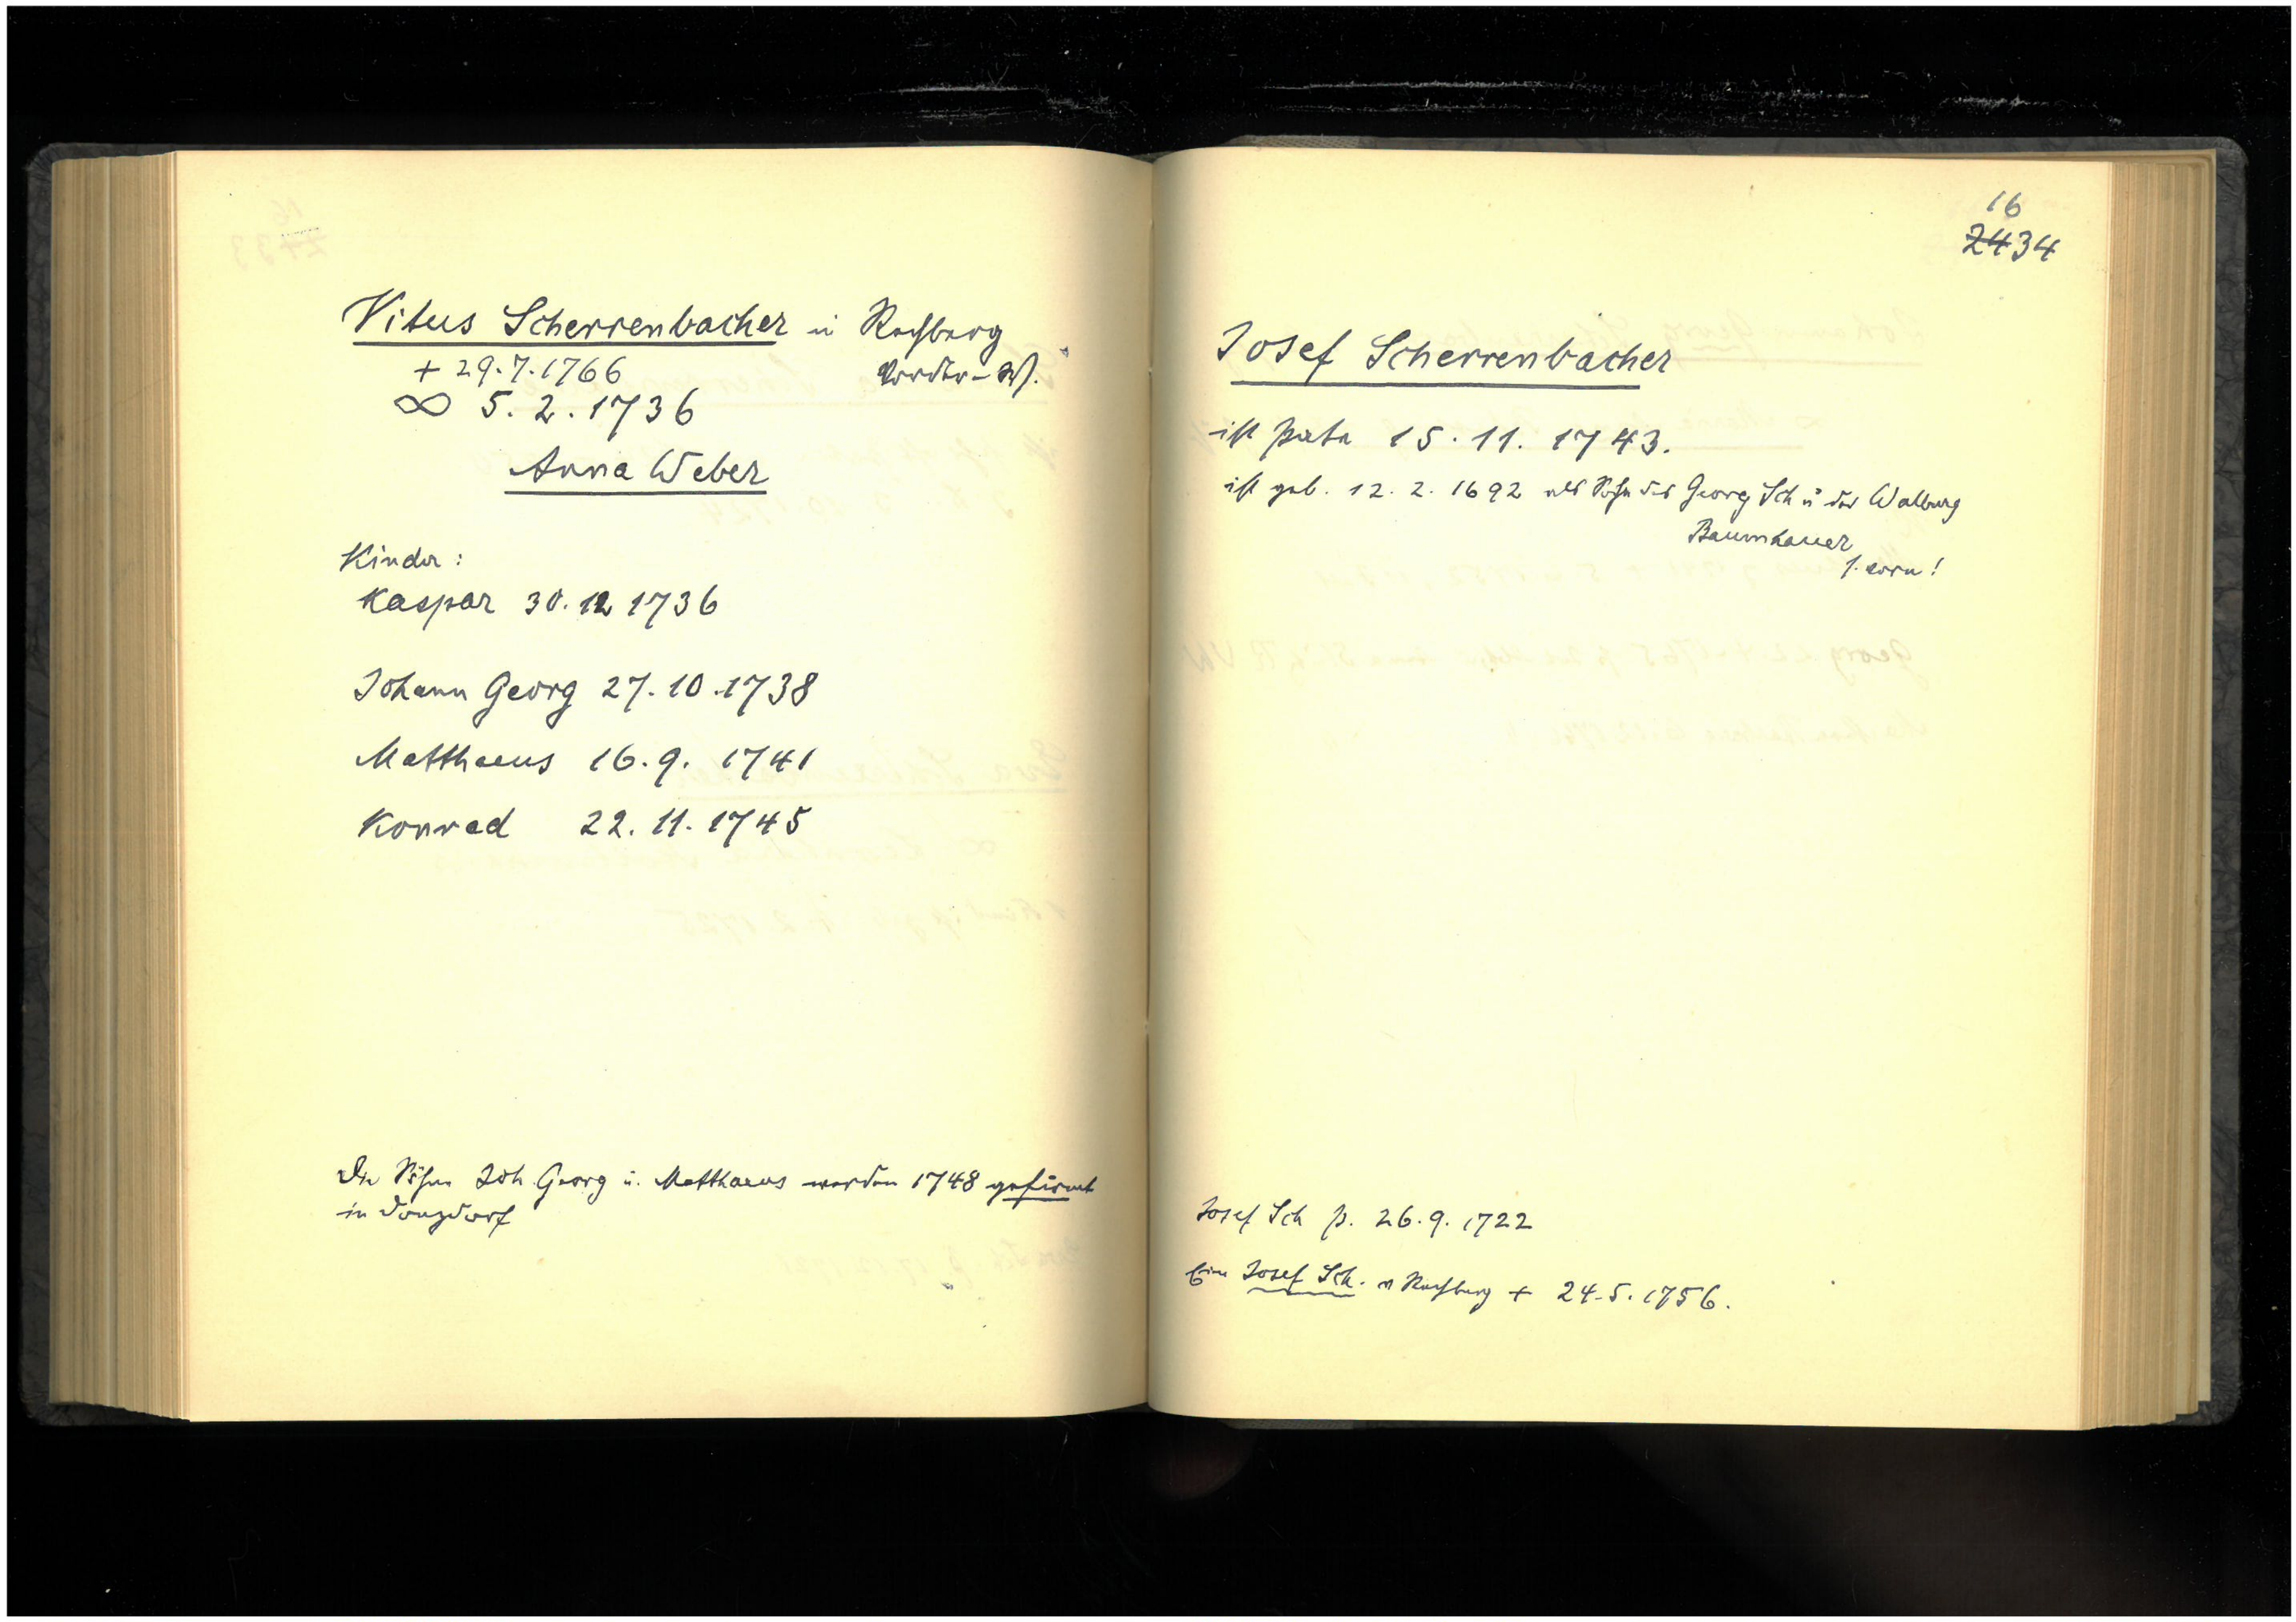 Vitus Scherrenbacher in Rechberg
Vorder-W.
+ 29.7.1766
∞ 5. 2. 1736
Anna Weber
Kinder:
Kaspar 30.12 1736
Johann Georg 27.10.1738
Matthaeus 16.9. 1741
Konrad 22.11.1745
Die Söhne Joh. Georg u. Matthaeus werden 1748 gefirmt
in Donzdorf
16
2434
Josef Scherrenbacher
ist Pate 15.11. 1743.
ist geb. 12.2.1692 als Sohn des Georg Sch u der Walburg
Baumhauer
s. vorn!
Josef Sch p. 26.9.1722
Ein Josef Sch. v Rechberg + 24.5.1756.